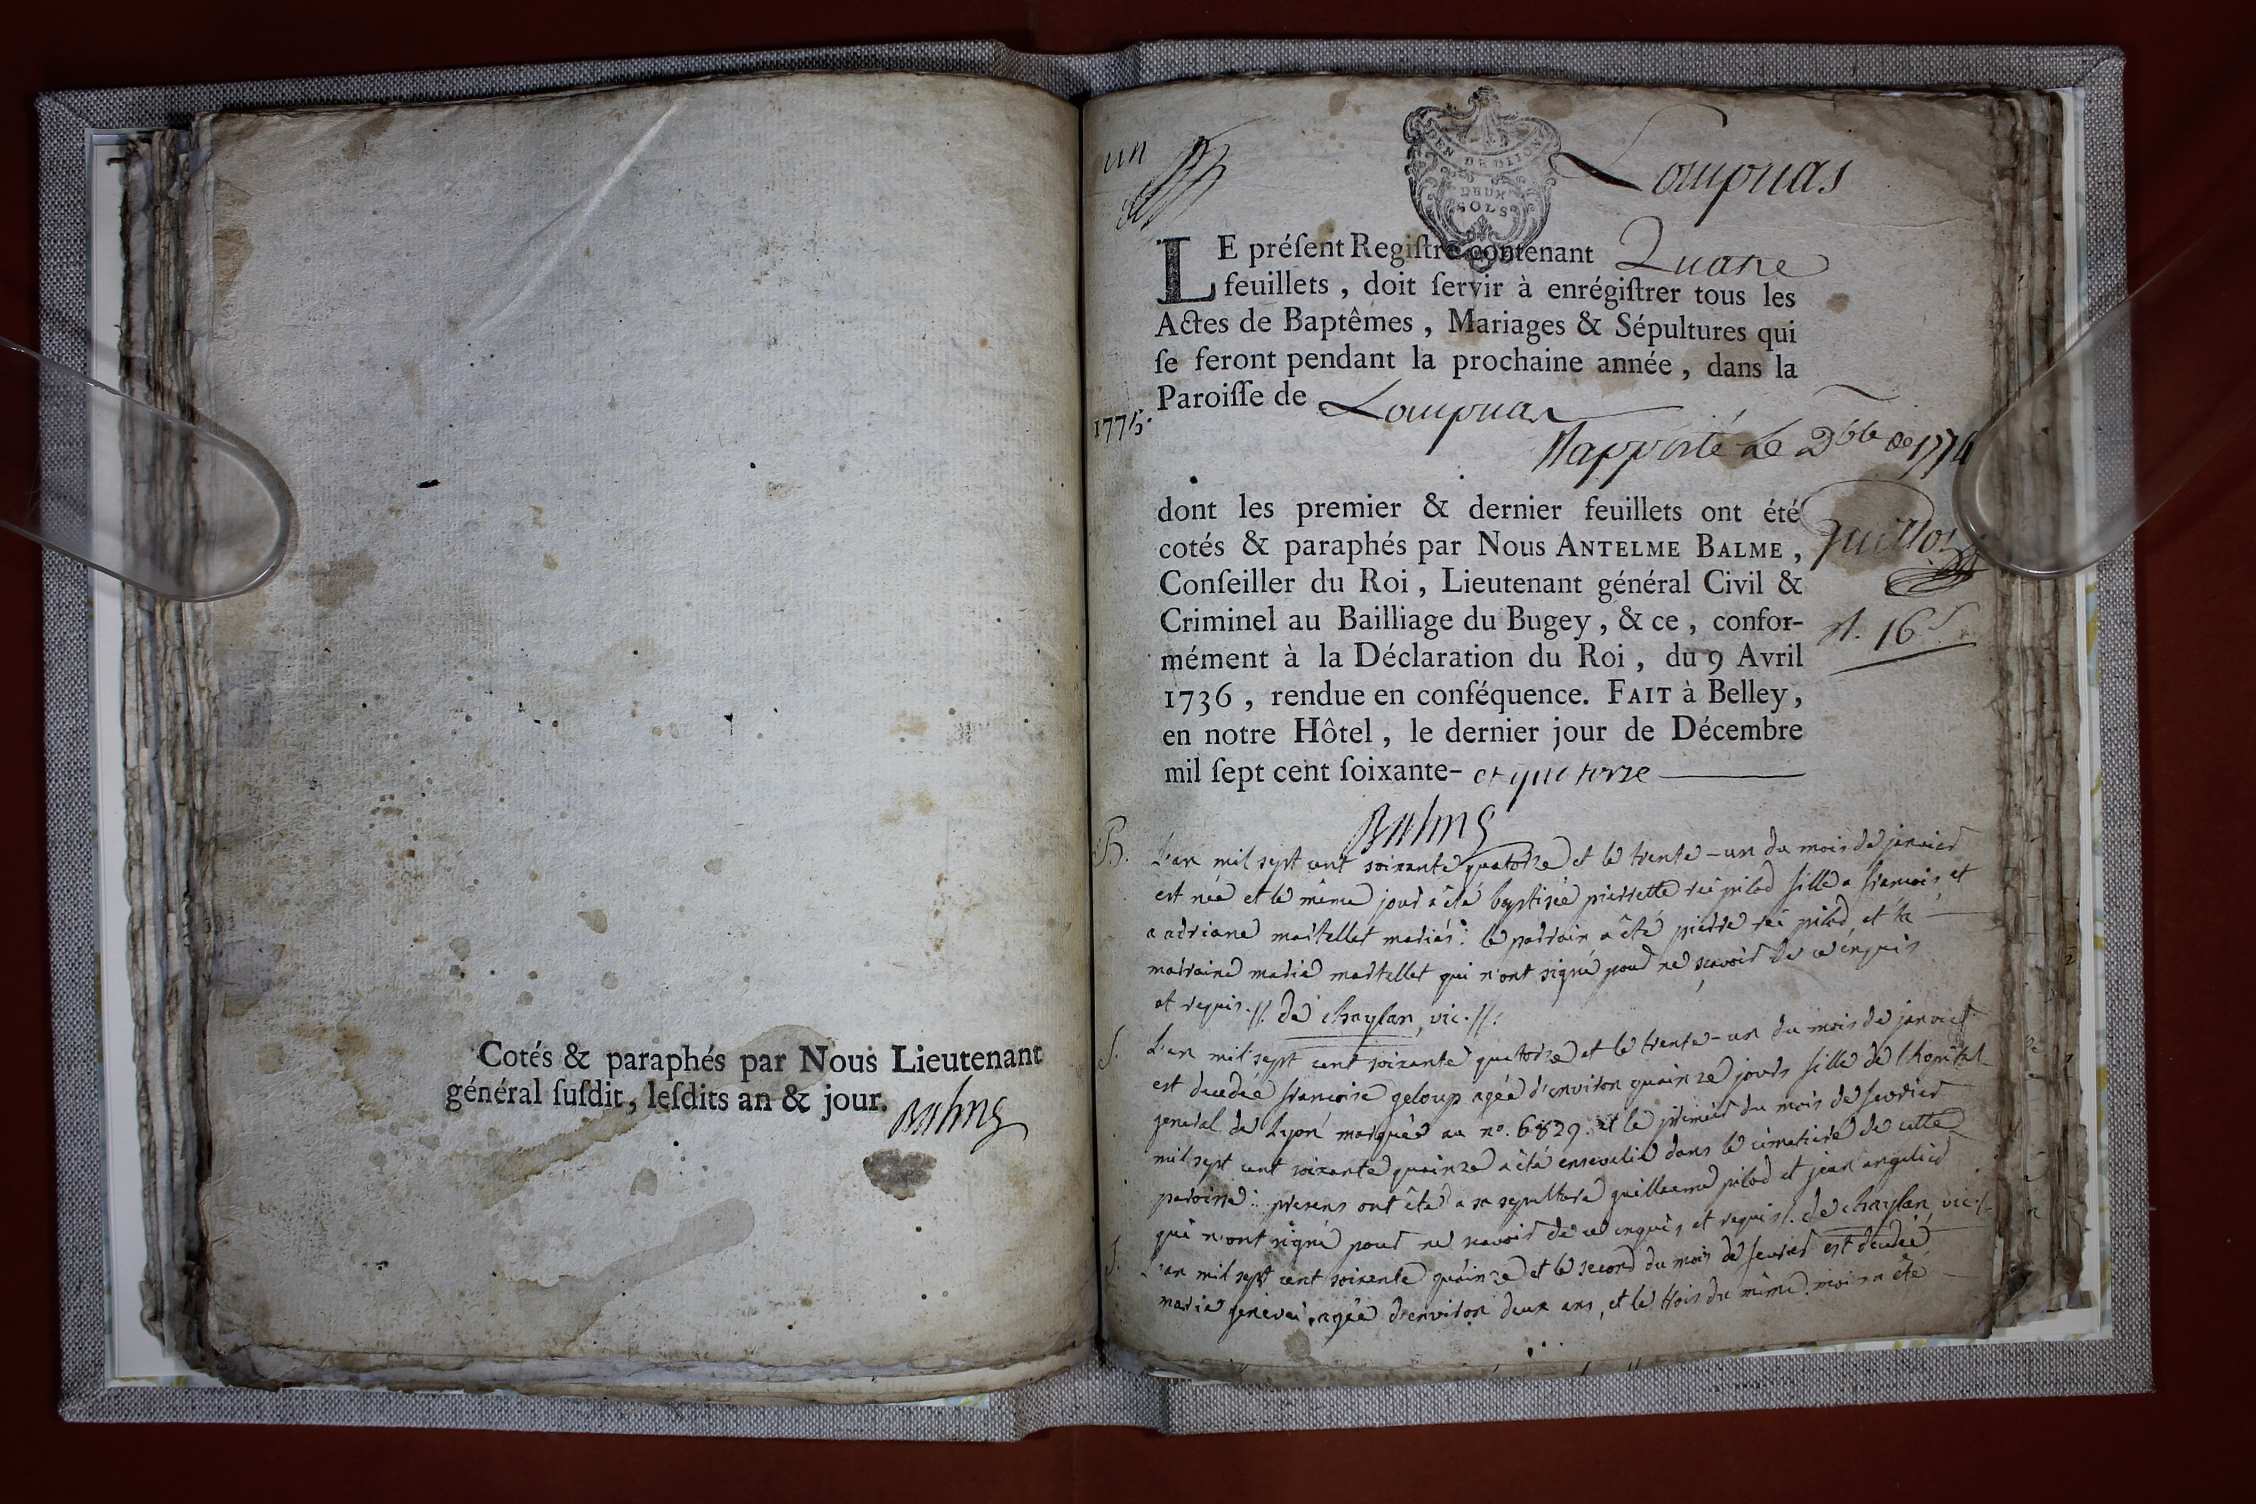 Cotés & paraphés par Nous Lieutenant
général ſuſdit, leſdits an & jour.
Balme
un
GEN DE DIJON
DEUX
SOLS
Lompnas
LE préſent Regiſtre contenant Quatre
feuillets, doit ſervir à enrégiſtrer tous les
Actes de Baptêmes, Mariages & Sépultures qui
ſe feront pendant la prochaine année, dans la
Paroiſſe de Lompnas
1775.
Rapporté le 9bre de 177
dont les premier & dernier feuillets ont été
cotés & paraphés par Nous ANTELME BALME,
Conſeiller du Roi, Lieutenant général Civil &
Criminel au Bailliage du Bugey, & ce, confor-
mément à la Déclaration du Roi, du 9 Avril
1736, rendue en conſéquence. FAIT à Belley,
en notre Hôtel, le dernier jour de Décembre
mil ſept cent ſoixante- et quatorze
16s
Balme
B. L'an mil sept cent soixante quatorze et le trente-un du mois de janvier
est née et le même jour a été baptisée pierrette rei pilod fille a francois et
a adriane martellet mariés: le parrain a été pierre rei pilod et la
marraine marie martellet qui n'ont signé pour ne scavoir de ce enquis
et requis.//. de chaylan, vic.//.
S. L'an mil sept cent soixante quatorze et le trente-un du mois de janvier
est decedée francoise geloup agée d'environ quainze jours fille de l'hopital
general de Lyon marquée au no. 6829. et le premier du mois de fevrier
mil sept cent soixante quainze a été ensevelie dans le cimetiere de cette
paroisse: presens ont été a sa sepulture guillaume pilod et jean angelier
qui n'ont signé pour ne scavoir de ce enquis et requis/. de chaylan, vic./.
S. L'an mil sept cent soixante quainze et le second du mois de fevrier est decedée
marie agée d'environ deux ans, et le trois du même mois a été